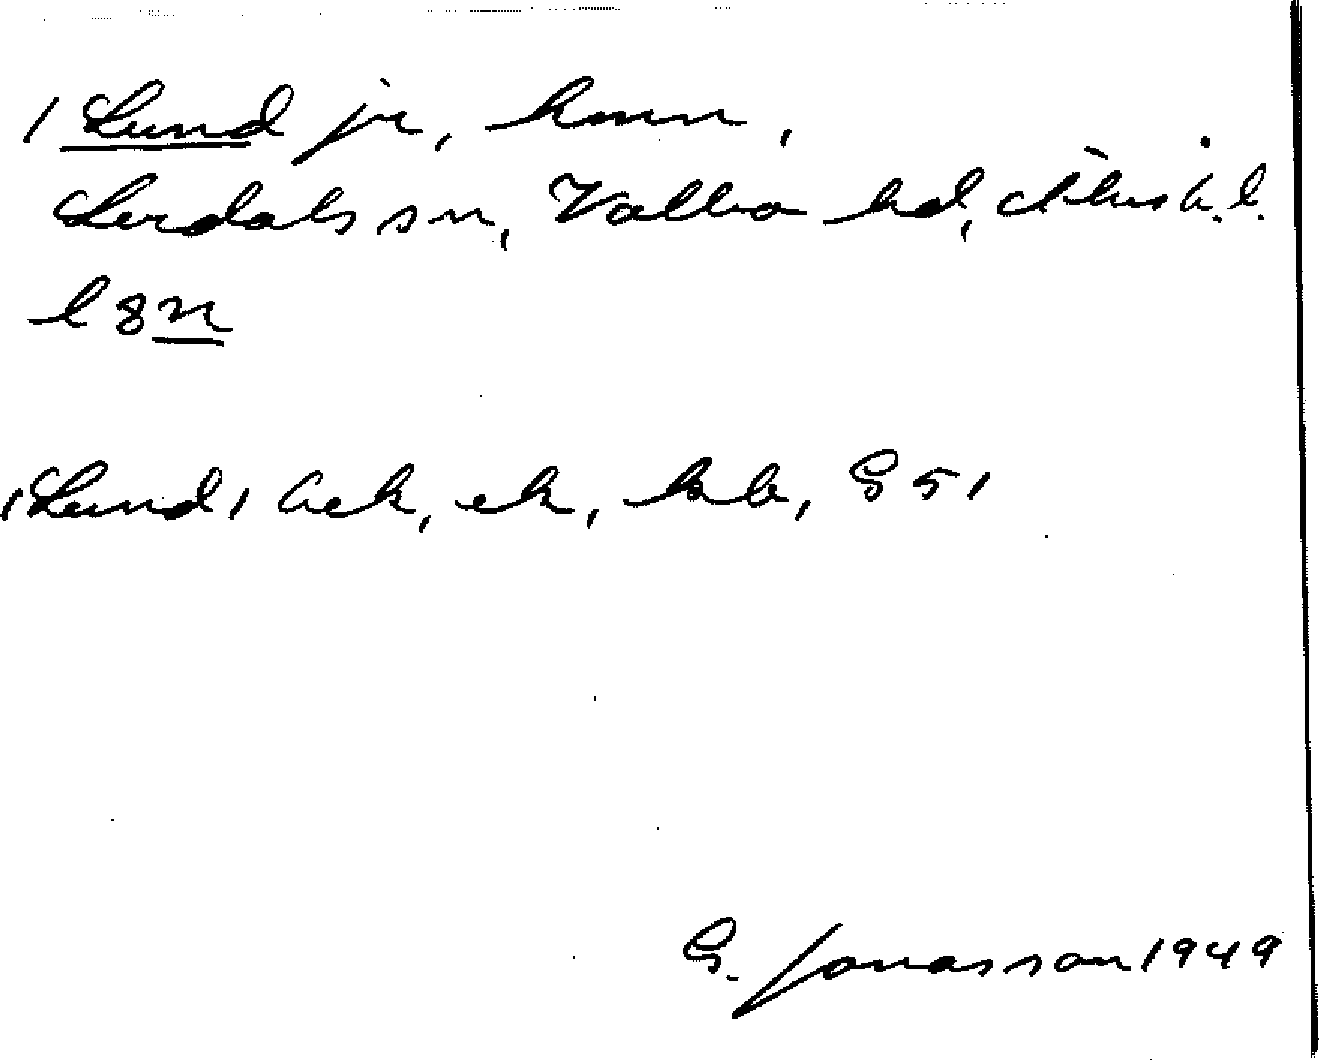 / Lund jr, hmn,
Lerdals sn, Valbo hd, Älvsb. l.
l 8 n
, Lund, ack, ek, bb, S 51
G. Jonasson 1949